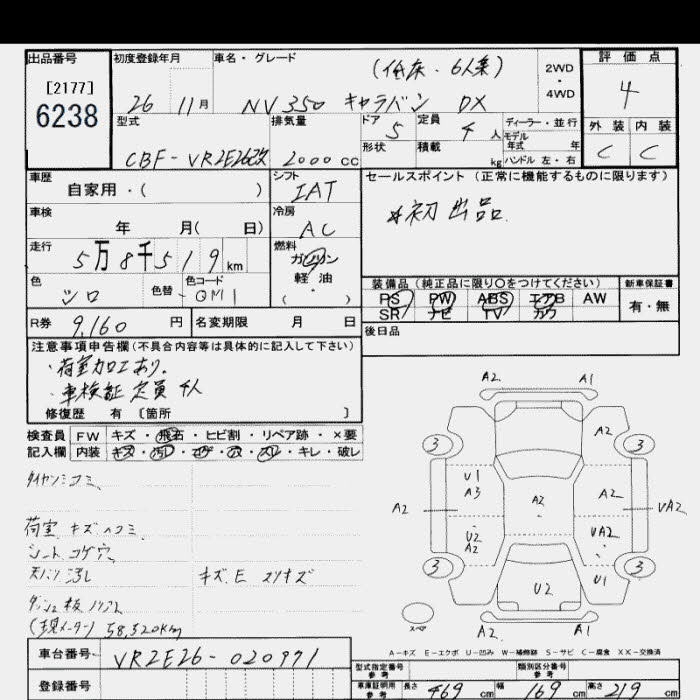 出品番号 初度登録年月 車名・グレード 2WD ・ 4WD 評価点
[2177]
6238
26 11月
(低床・6人乗)
NV350 キャラバン DX
4
型式 排気量 ドア 5 定員 4人 ディーラー・並行
外装 内装
CBF-VR2E26改 2000cc 形状 積載 kg モデル年式 年 ハンドル 左・右
C C
車歴 自家用・( ) シフト IAT
セールスポイント(正常に機能するものに限ります)
*初出品.
車検 年 月( 日) 冷房 AC
走行 5万8千519km 燃料 ガソリン 軽油 ・( )
色 シロ 色替 色コード QM1
装備品(純正品に限り○をつけてください) 新車保証書
PS PW ABS エアB AW 有・無
SR ナビ TV カワ
R券 9,160円 名変期限 月 日
後日品
注意事項申告欄(不具合内容等は具体的に記入して下さい)
・荷室加工あり.
・車検証 定員 4人
修復歴 有〔箇所 〕
検査員記入欄
FW キズ・飛石・ヒビ割・リペア跡・×要
内装 キズ・汚レ・コゲ・穴・スレ・キレ・破レ
荷室 キズ ヘコミ
シート コゲ穴
天バリ 汚レ キズ.E スリキズ
(現メーター) 58,520Km
A2 A1
A2
3 3
U1
A3
A2 A2 A2 UA2
U2
A2
UA2
3 3
U2 U1
スペア
A2 A1
A-キズ E-エクボ U-凹み W-補修跡 S-サビ C-腐食 XX-交換済
車台番号 VR2E26-020971
登録番号
型式指定番号 参考 類別区分番号 参考
車庫証明用 参考 長さ 469cm 幅 169cm 高さ 219cm